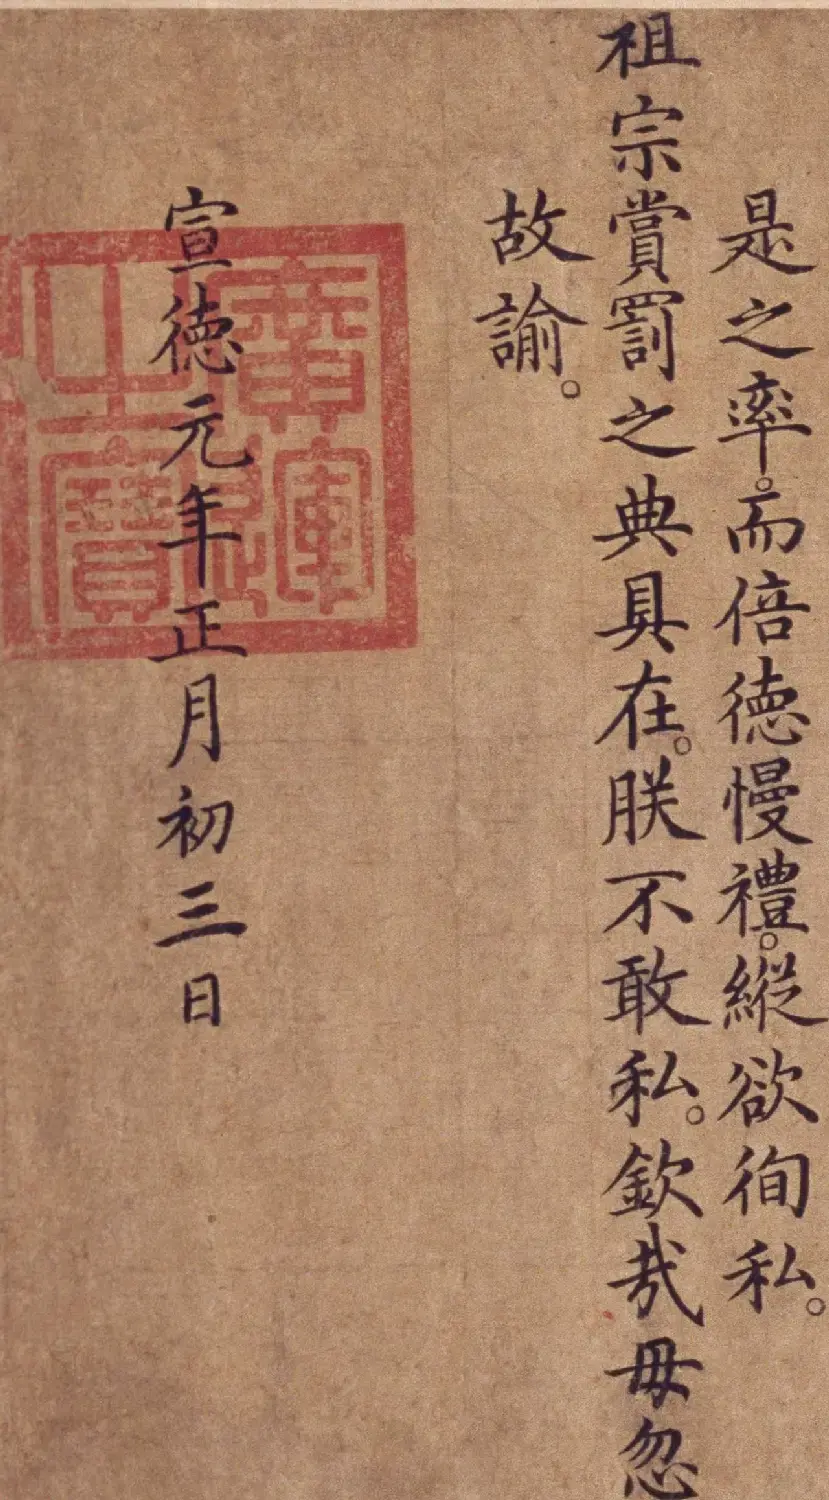 是之率。而倍德慢禮。縱欲徇私。
祖宗賞罰之典具在。朕不敢私。欽哉毋忽
故諭。
宣德元年正月初三日
廣運之寶